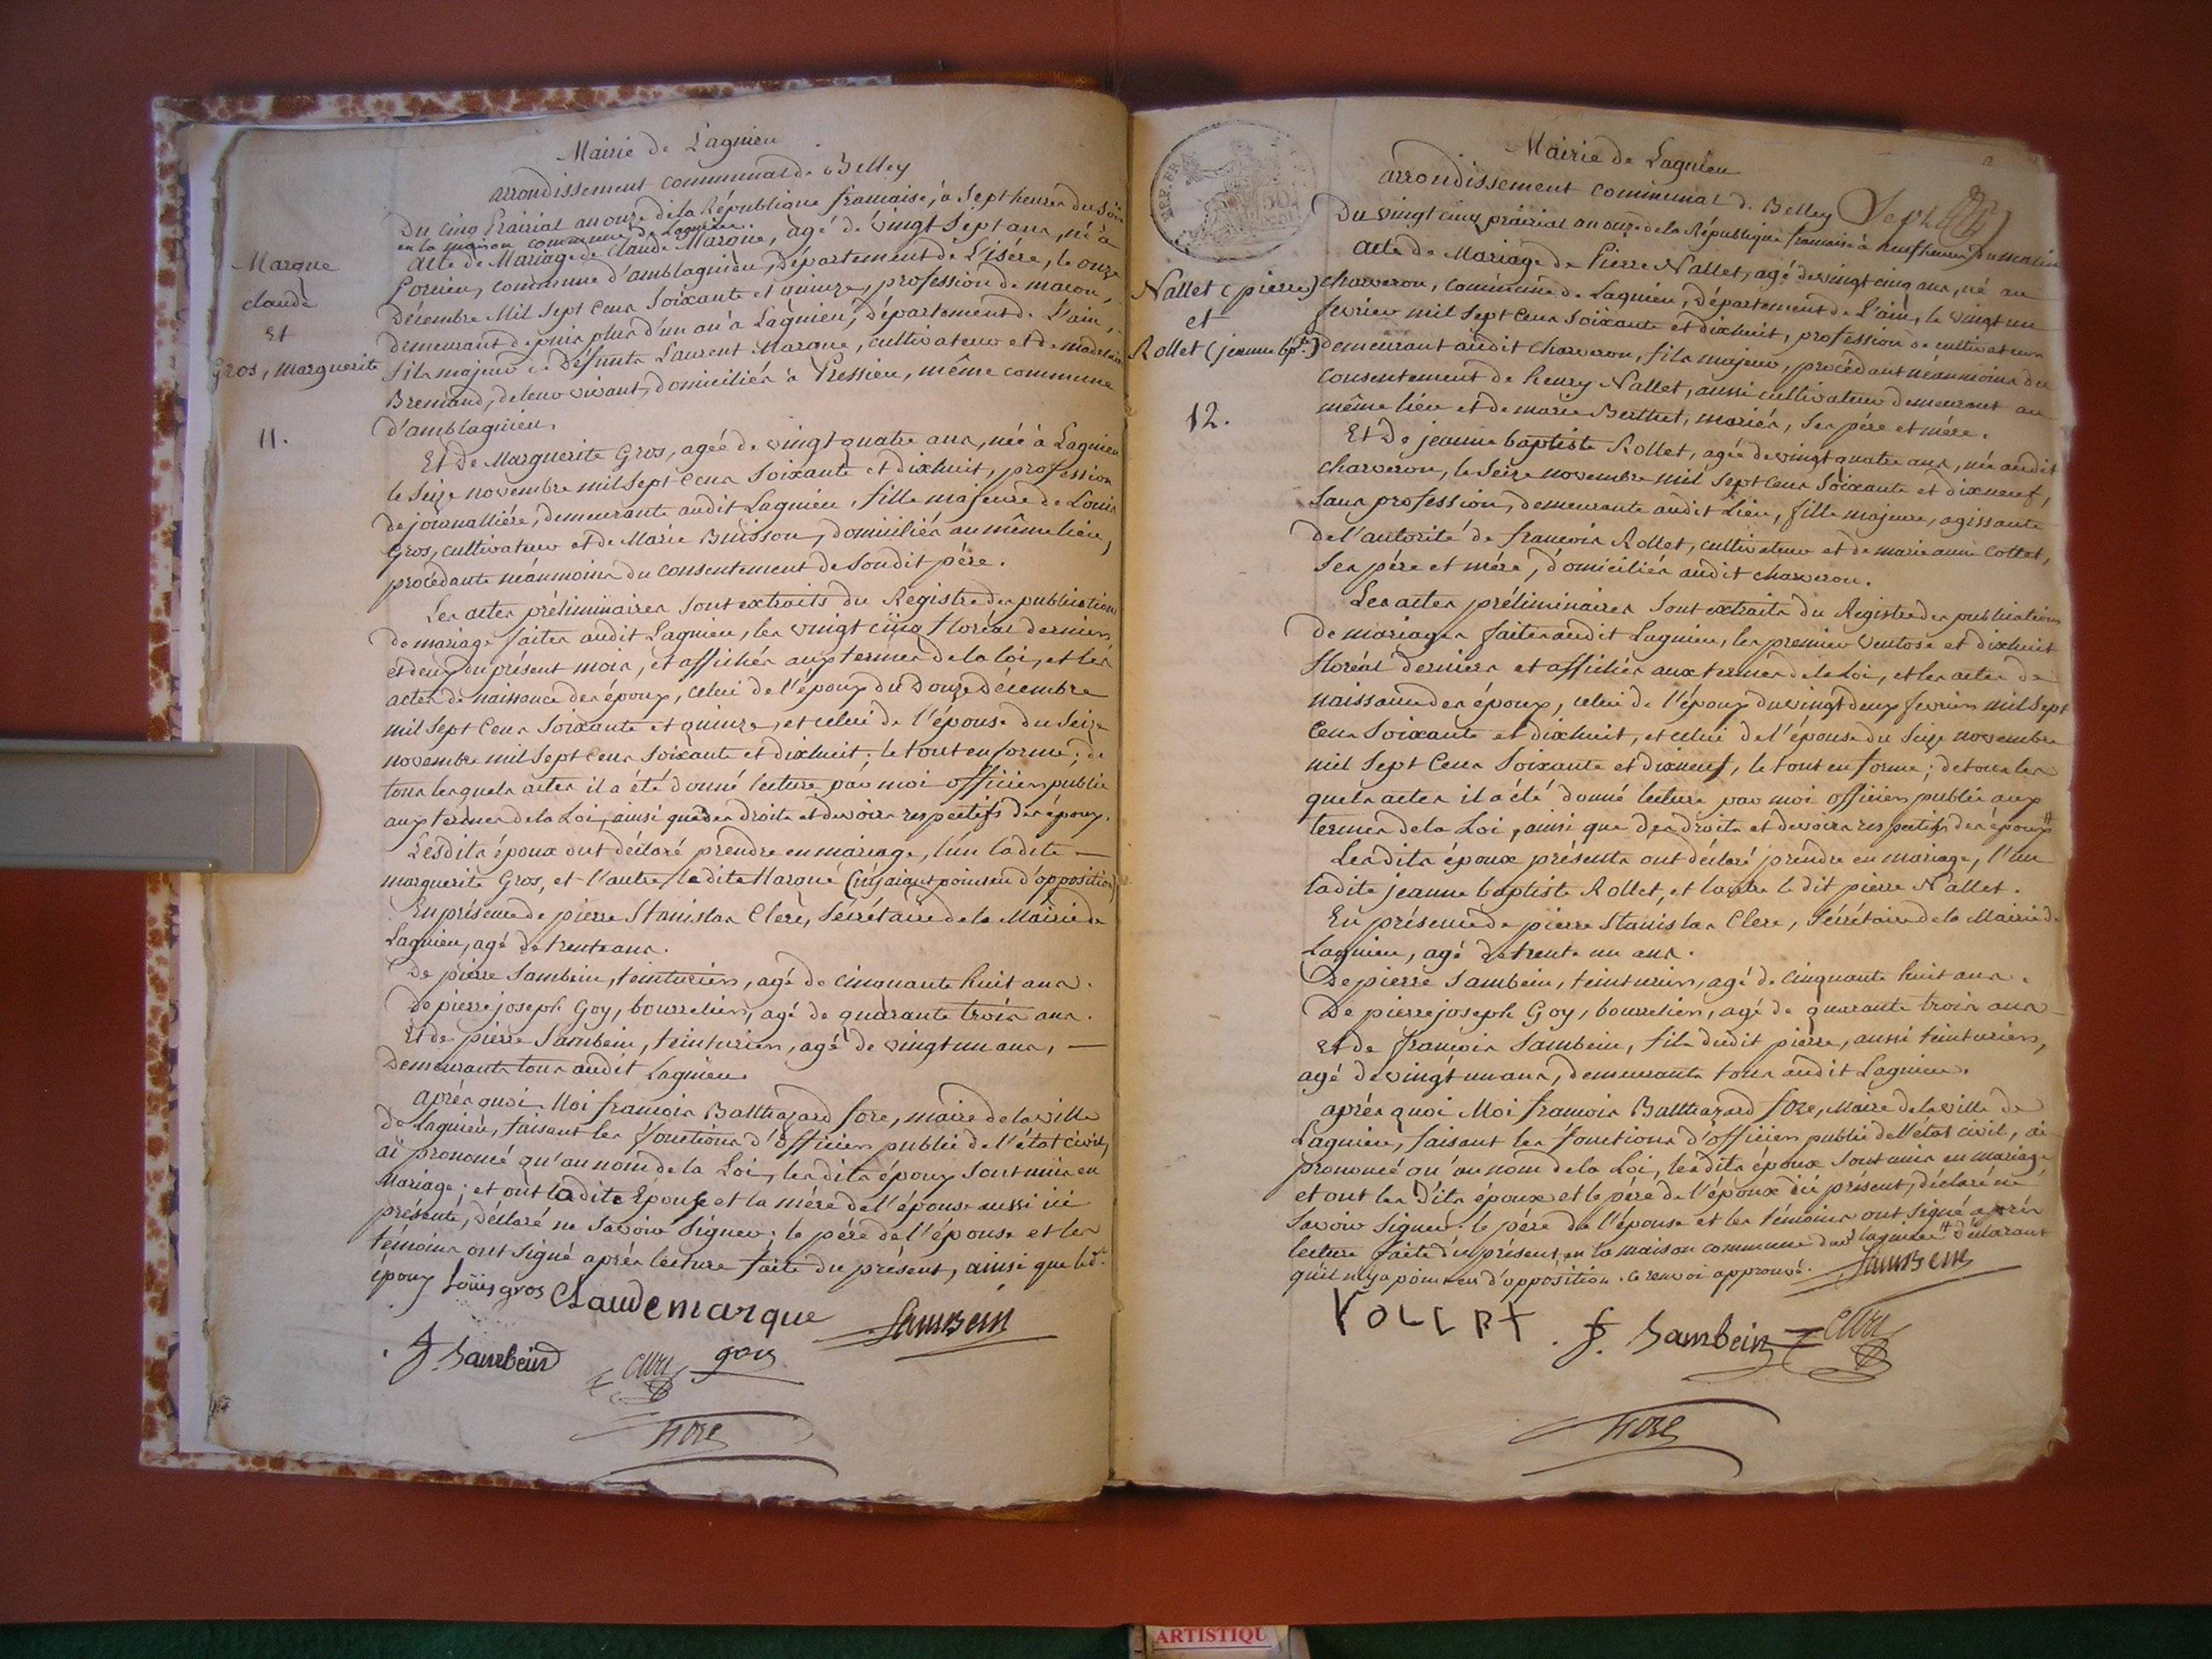 Mairie de Lagnieu
arrondissement communal de Belley
Du cinq Prairial an onze de la République francaise, à Sept heures du Soir
en la maison commune de Lagnieu.
acte de Mariage de Claude Marque, agé de vingt Sept ans, né à
commune d'amblagnieu, département de L'isére, le onze
Décembre Mil Sept Cens Soixante et quinze, profession de macon,
demeurant depuis plus d'un an à Lagnieu, département de L'ain,
fils majeur de Défunts Laurent Marque, cultivateur et de madelaine
Bremand, de leur vivant, domiciliés à Pressieu, même commune
d'amblagnieu.
Marque
claude
Et
Gros, marguerite
11.
Et De Marguerite Gros, agée de vingt quatre ans, née à Lagnieu
le Seize novembre mil Sept Cens Soixante et dixhuit, profession
de journalliére, demeurante audit Lagnieu, fille majeure de Louis
Gros, cultivateur et de Marie Buisson, domiciliés au même lieu,
procédante néanmoins du consentement de Sondit pére.
Les actes préliminaires Sont extraits du Registre des publications
de mariage faites audit Lagnieu, les vingt cinq floréal dernier
et deux du présent mois, et affichés aux termes de la loi, et les
actes de naissance des époux, celui de l'époux du Douze décembre
mil Sept Cens Soixante et quinze, et celui de l'épouse du Seize
novembre mil Sept Cens Soixante et dixhuit; le tout en forme; de
tous lesquels actes il a été donné lecture par moi officier public
aux termes de la Loi, ainsi que des droits et devoirs respectifs des époux.
Lesdits époux ont déclaré prendre en mariage, l'un ladite —
marguerite Gros, et l'autre, ledit Marque (n'yaiant point eu d'opposition)
En présence de pierre Stanislas Clerc, Sécrétaire de la Mairie de
Lagnieu, agé de trente ans.
De pierre Sambein, teinturier, agé de cinquante huit ans.
De pierre joseph Goy, bourrelier, agé de quarante trois ans.
Et de pierre Sambein, teinturier, agé de vingt un ans, —
Demeurants tous audit Lagnieu.
aprés quoi Moi francois Balthazard fore, maire de la ville
de Lagnieu, faisant les fonctions d'officier public de l'état civil,
ai prononcé qu'au nom de la Loi, lesdits époux Sont unis en
Mariage; et ont ladite Epouse et la mére de l'épouse aussi ici
présente, déclaré ne Savoir Signer; le pére de l'épouse et les
témoins ont Signé aprés lecture faite du présent, ainsi que led.t
époux Loüis gros Claude marque Sambein
f. Sambein Clerc goy
fore
Mairie de Lagnieu
arrondissement communal de Belley Sept
Du vingt cinq prairial an onze de la République francaise à neuf heures du matin
acte de Mariage de Pierre Nallet, agé de vingt cinq ans, né au
charveron, commune de Lagnieu, Département de L'ain, le vingt un
fevrier mil Sept Cens Soixante et dixhuit, profession de cultivateur
demeurant audit charveron, fils majeur, procédant néanmoins du
consentement de henry Nallet, aussi cultivateur demeurant au
même lieu et de marie Berthet, mariés, Ses pére et mére.
Nallet (pierre)
et
Rollet (jeanne bpte.)
12.
Et De jeanne baptiste Rollet, agée de vingt quatre ans, née audit
charveron, le Seize novembre mil Sept Cens Soixante et dixneuf,
Sans profession, demeurante audit Lieu, fille majeure, agissante
de l'autorité de francois Rollet, cultivateur et de marie anne Cottet,
Ses pére et mére, domiciliés audit charveron.
Les actes préliminaires Sont extraits du Registre des publications
de mariages faites audit Lagnieu, les premier ventose et dixhuit
floréal derniers et affichés aux termes de la Loi, et les actes de
naissance des époux, celui de l'époux du vingt deux fevrier mil Sept
Cens Soixante et dixhuit, et celui de l'épouse du Seize novembre
mil Sept Cens Soixante et dixneuf, le tout en forme; de tous les
quels actes il a été donné lecture par moi officier public aux
termes de la Loi, ainsi que des droits et devoirs respectifs des époux #
Lesdits époux présents ont déclaré prendre en mariage, l'un
ladite jeanne baptiste Rollet, et l'autre ledit pierre Nallet.
En présence de pierre Stanislas Clerc, Sécrétaire de la Mairie de
Lagnieu, agé de trente un ans.
De pierre Sambein, teinturier, agé de Cinquante huit ans.
De pierre joseph Goy, bourrelier, agé de quarante trois ans
Et de francois Sambein, fils dudit pierre, aussi teinturier,
agé de vingt un ans, demeurants tous audit Lagnieu.
aprés quoi Moi francois Balthazard fore, Maire de la ville de
Lagnieu, faisant les fonctions d'officier public de l'état civil, ai
prononcé qu'au nom de la Loi, lesdits époux Sont unis en mariage
et ont lesdits époux et le pére de l'époux ici présent, déclaré ne
Savoir Signer. le pére de l'épouse et les témoins ont Signé aprés
lecture faite du présent, en la maison commune dud. Lagnieu # déclarant
qu'il n'y a point eu d'opposition. le renvoi approuvé. Sambein
f. Sambein Clerc
fore
ARTISTIQU